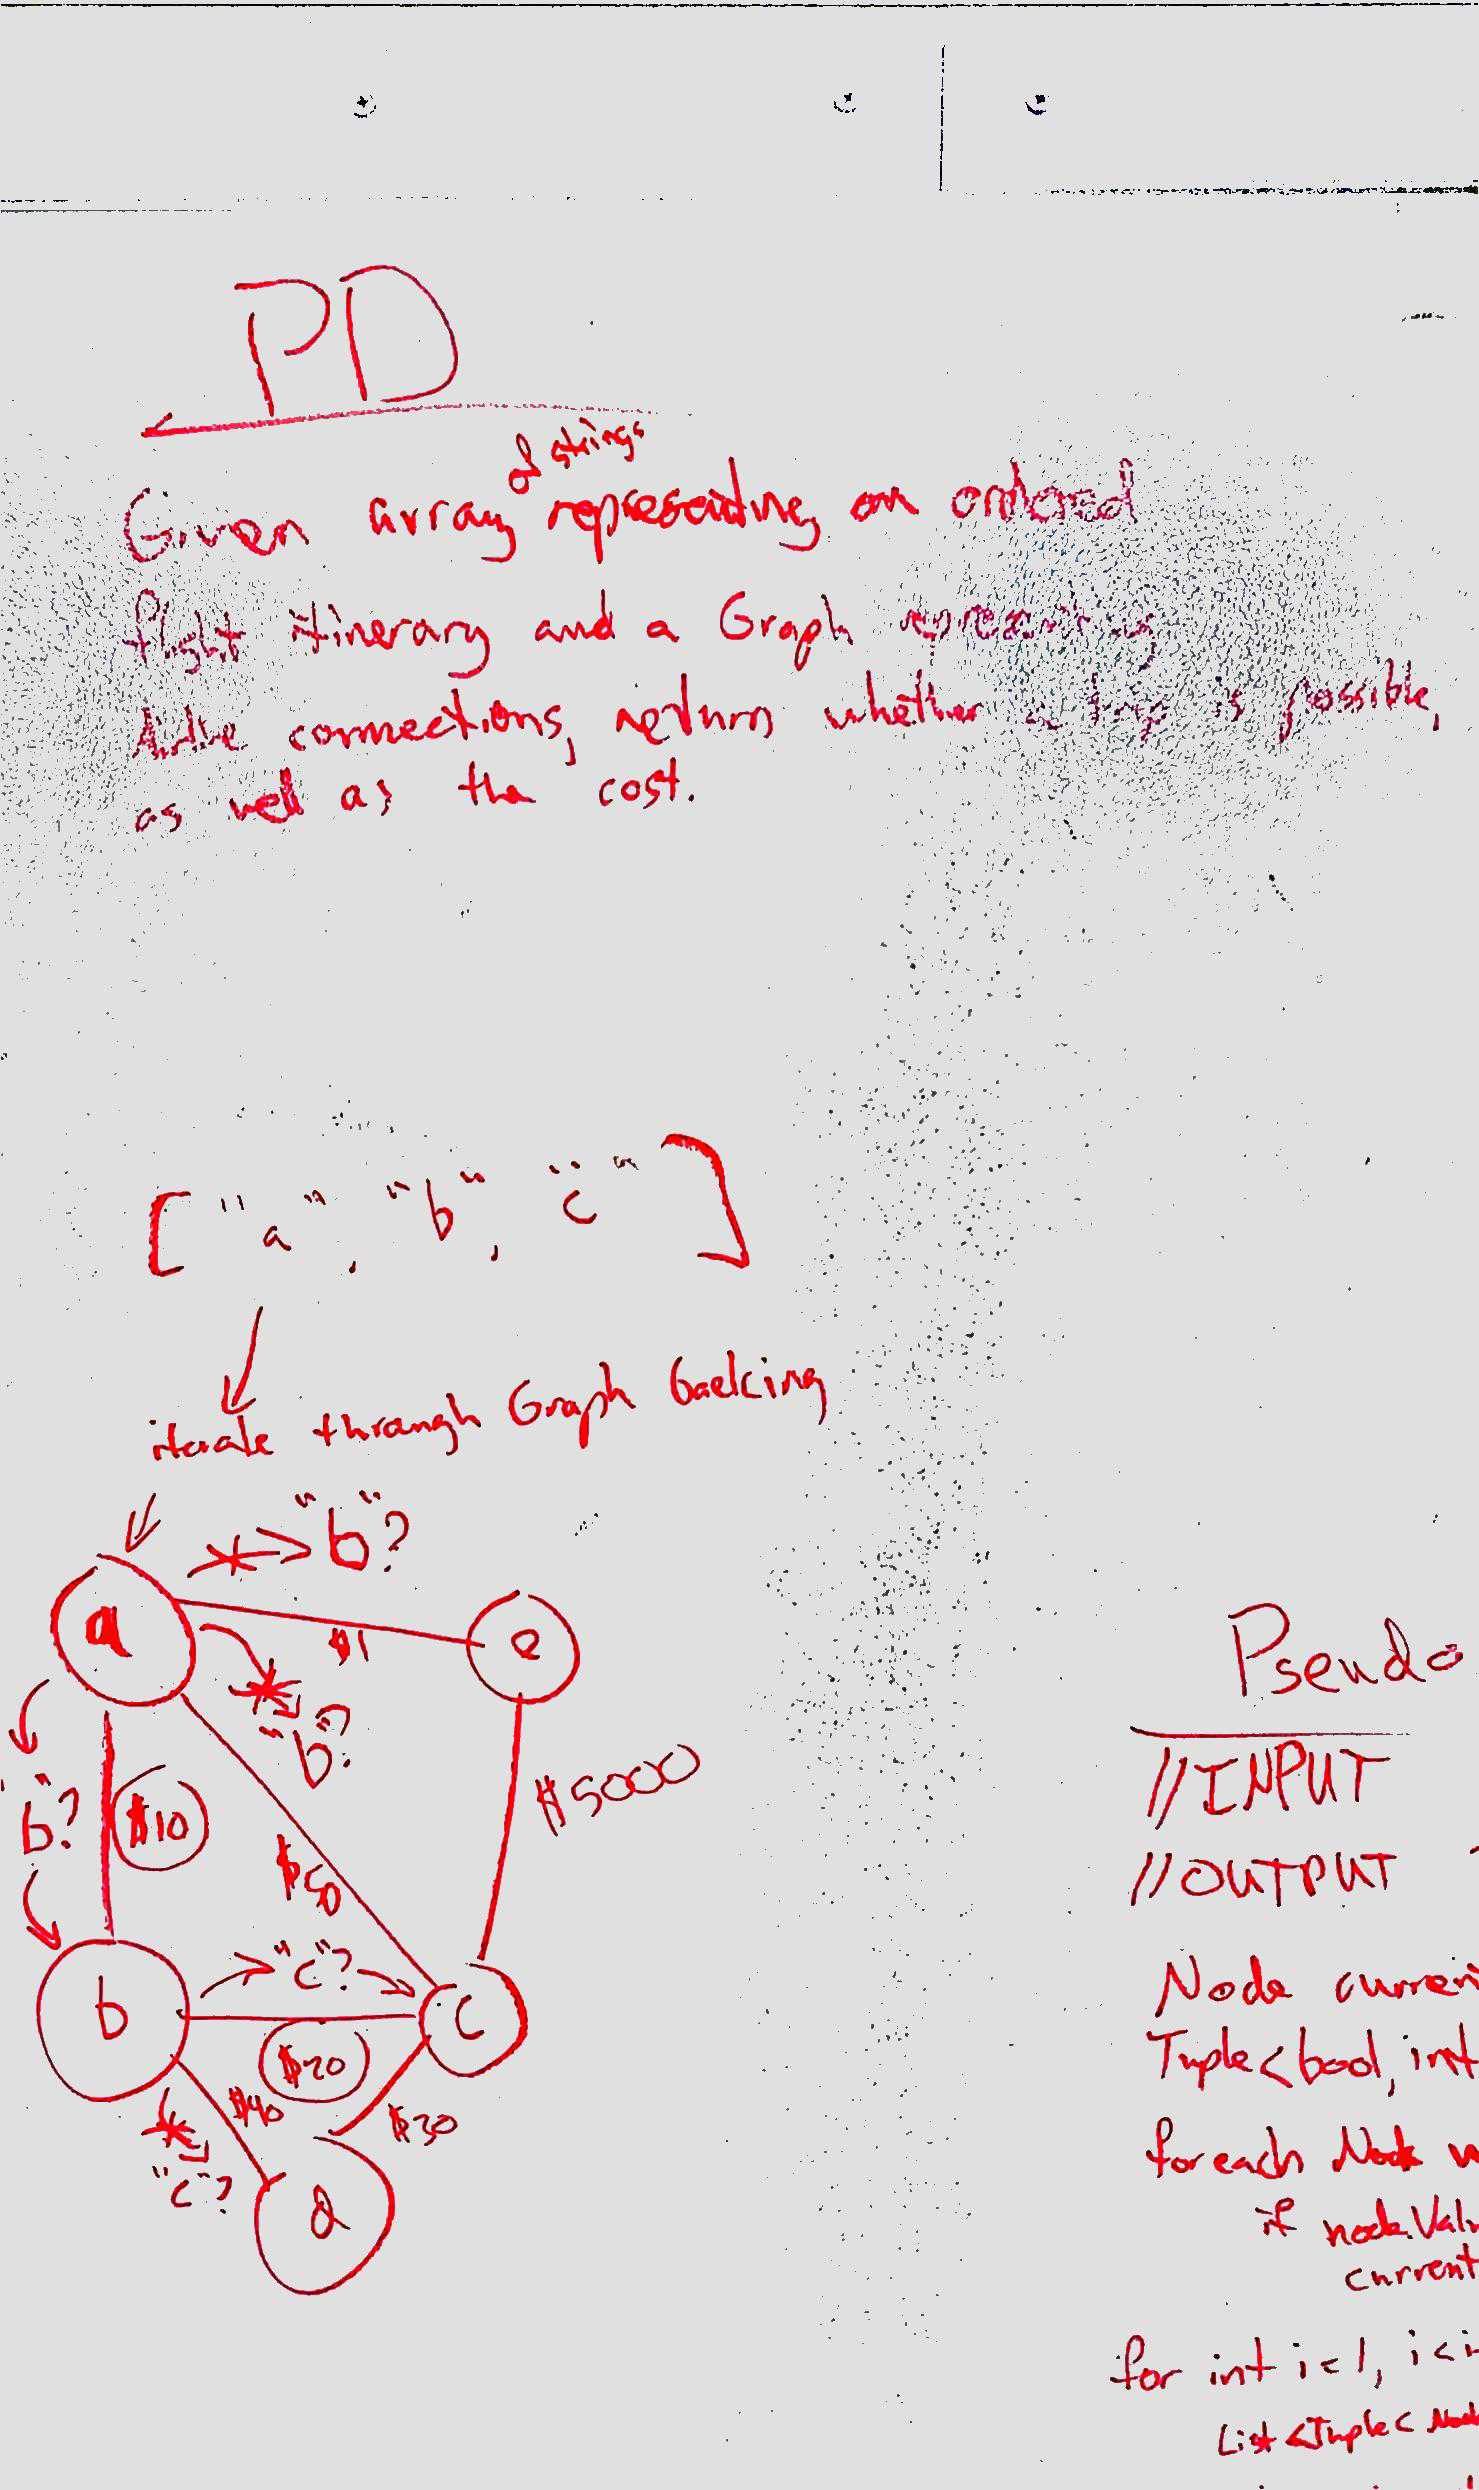 PD
of strings
Given array representing an ordered
flight itinerary and a Graph representing
Airline connections, return whether a trip is possible,
as well as the cost.
["a", "b", "c"]
iterate through Graph
"b"?
a
$1
e
"b"?
"b"?
$10
$50
$5000
b
"c"?
c
$20
$40
$30
"c"?
d
Pseudo
//INPUT
//OUTPUT
Node curren
Tuple<bool, int
foreach Node n
if node.Valu
current
for int i=1, i<i
List<Tuple<Node